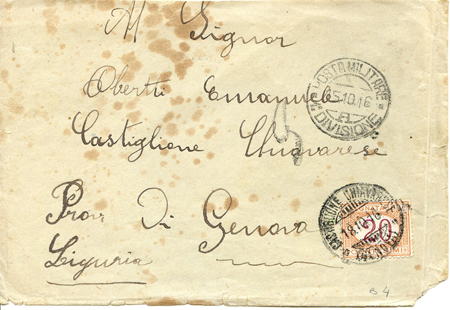 Al Signor
Oberti Emanuele
Castiglione
Chiavarese
Prov Di Genova
Liguria
POSTA MILITARE
15.10.16
DIVISIONE
CASTIGLIONE CHIAVARESE
18.10.16
20
B4